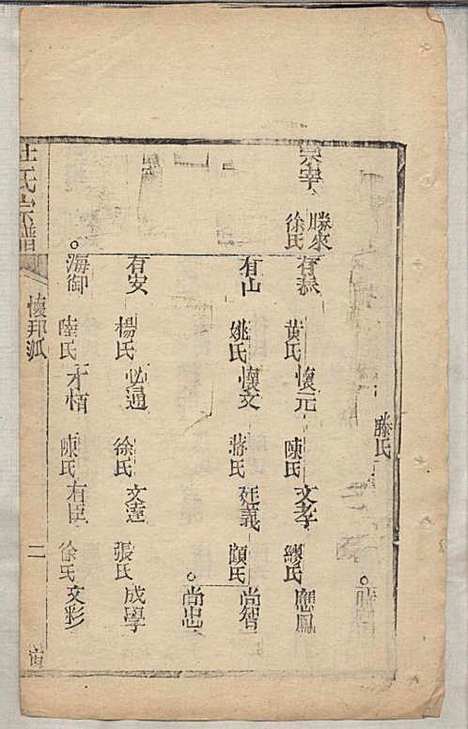 滕氏
崇宰
勝來
徐氏
有泰
黃氏
懷元
陳氏
文孝
繆氏
應鳳
有山
姚氏
懷文
蔣氏
廷義
顧氏
尚智
尚忠
有安
楊氏
必通
徐氏
文達
張氏
成學
海御
陸氏
才栢
陳氏
有臣
徐氏
文彩
杜氏宗譜
懷邦派
二